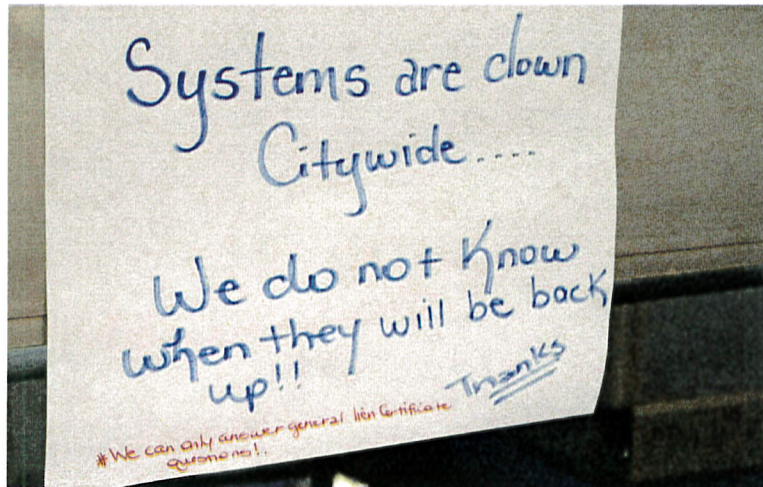 Systems are down
Citywide....
We do not know
when they will be back
up!!
Thanks
*We can only answer general lien Certificate
questions!.